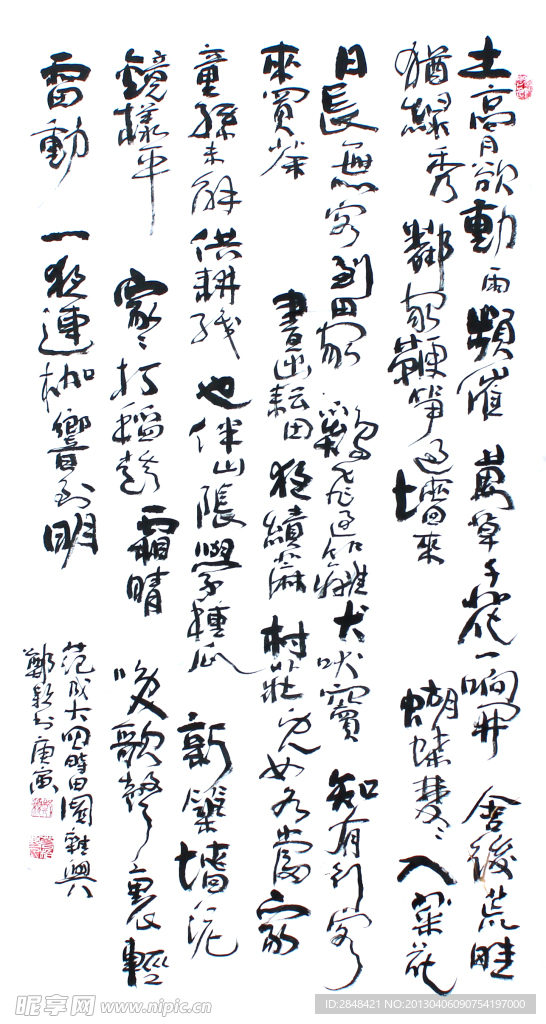 土膏欲動雨頻催 萬草千花一晌開 舍後荒畦
猶綠秀 鄰家鞭筍過墻來 蝴蝶雙〻入菜花
日長無客到田家 雞飛過籬犬吠竇 知有行客
來買茶 晝出耘田夜績麻 村莊兒女各當家
童孫未解供耕織 也伴山陰學種瓜 新築墻泥
鏡樣平 家〻打稻趁霜晴 笑歌聲裏輕
雷動 一夜連枷響到明
范成大四時田園雜興
鄭 書庚寅
昵享网 www.nipic.cn
ID:2848421 NO:20130406090754197000